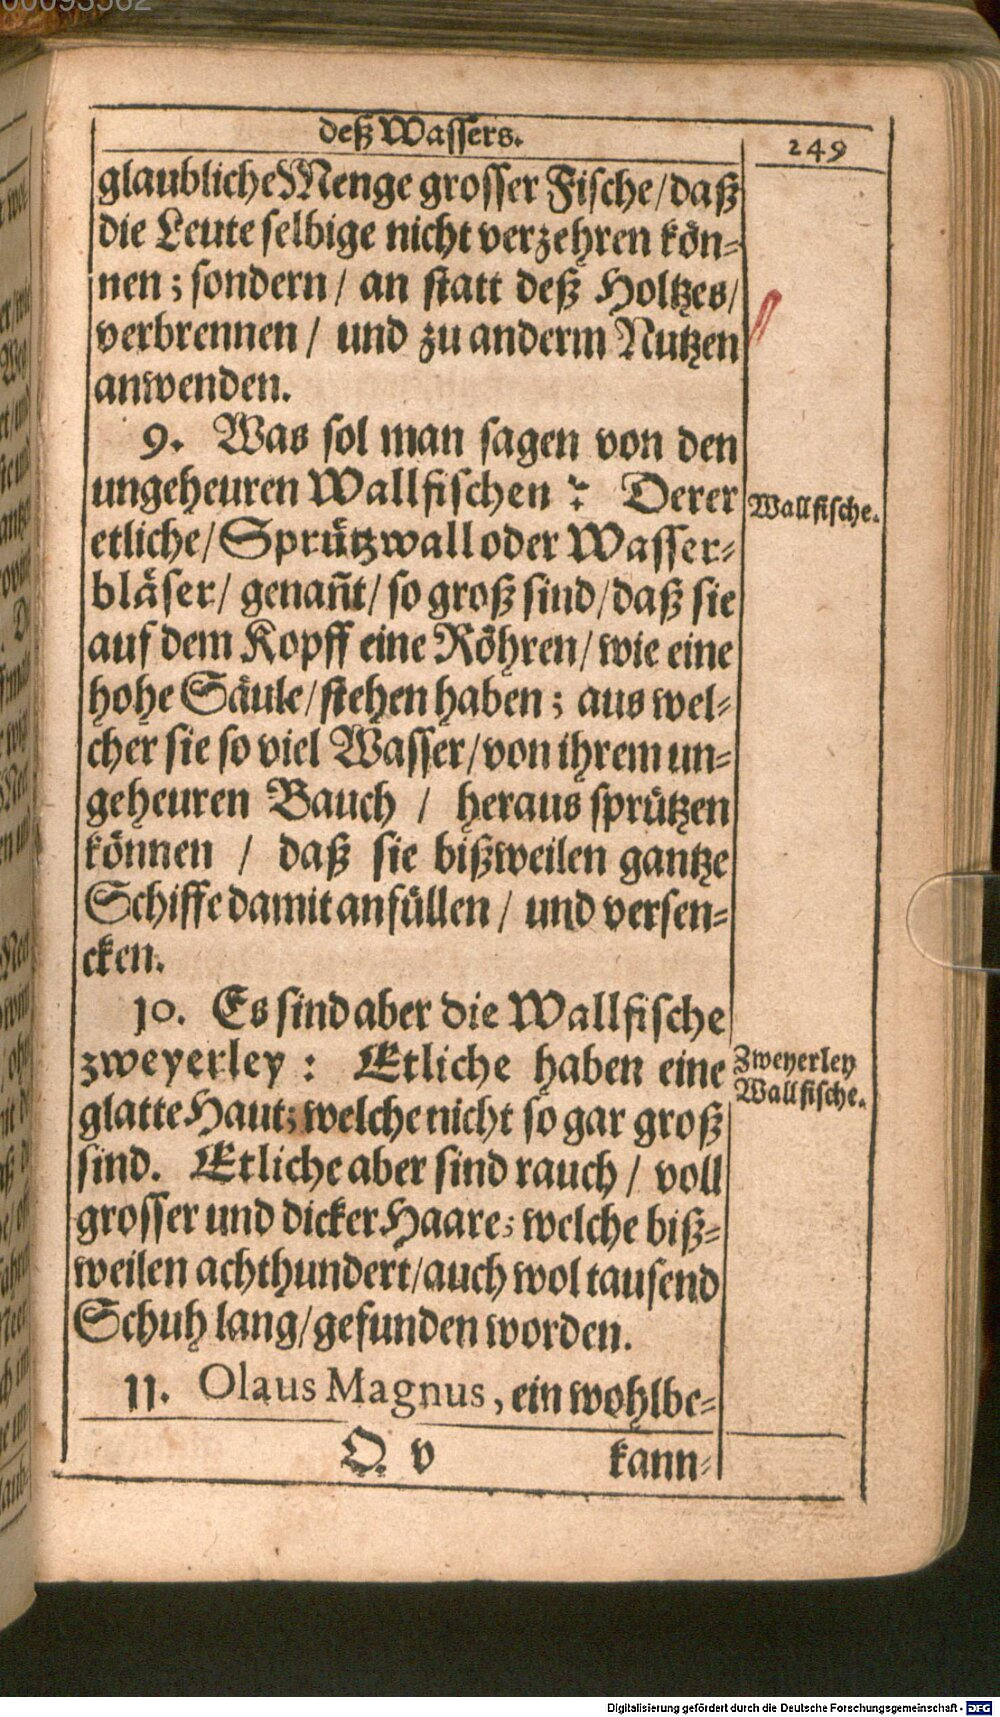 00093562
deß Wassers.
249
glaubliche Menge grosser Fische/daß
die Leute selbige nicht verzehren kön-
nen; sondern/ an statt deß Holtzes/
verbrennen/ und zu anderm Nutzen
anwenden.
9. Was sol man sagen von den
ungeheuren Wallfischen? Derer
Wallfische.
etliche/Sprützwall oder Wasser-
bläser/ genañt/ so groß sind/daß sie
auf dem Kopff eine Röhren/wie eine
hohe Säule/stehen haben; aus wel-
cher sie so viel Wasser/von ihrem un-
geheuren Bauch / heraus sprützen
können / daß sie bißweilen gantze
Schiffe damit anfüllen/ und versen-
cken.
10. Es sind aber die Wallfische
zweyerley: Etliche haben eine
Zweyerley
Wallfische.
glatte Haut; welche nicht so gar groß
sind. Etliche aber sind rauch/ voll
grosser und dicker Haare; welche biß-
weilen achthundert/auch wol tausend
Schuh lang/gefunden worden.
11. Olaus Magnus, ein wohlbe-
Q v
kann-
Digitalisierung gefördert durch die Deutsche Forschungsgemeinschaft - DFG